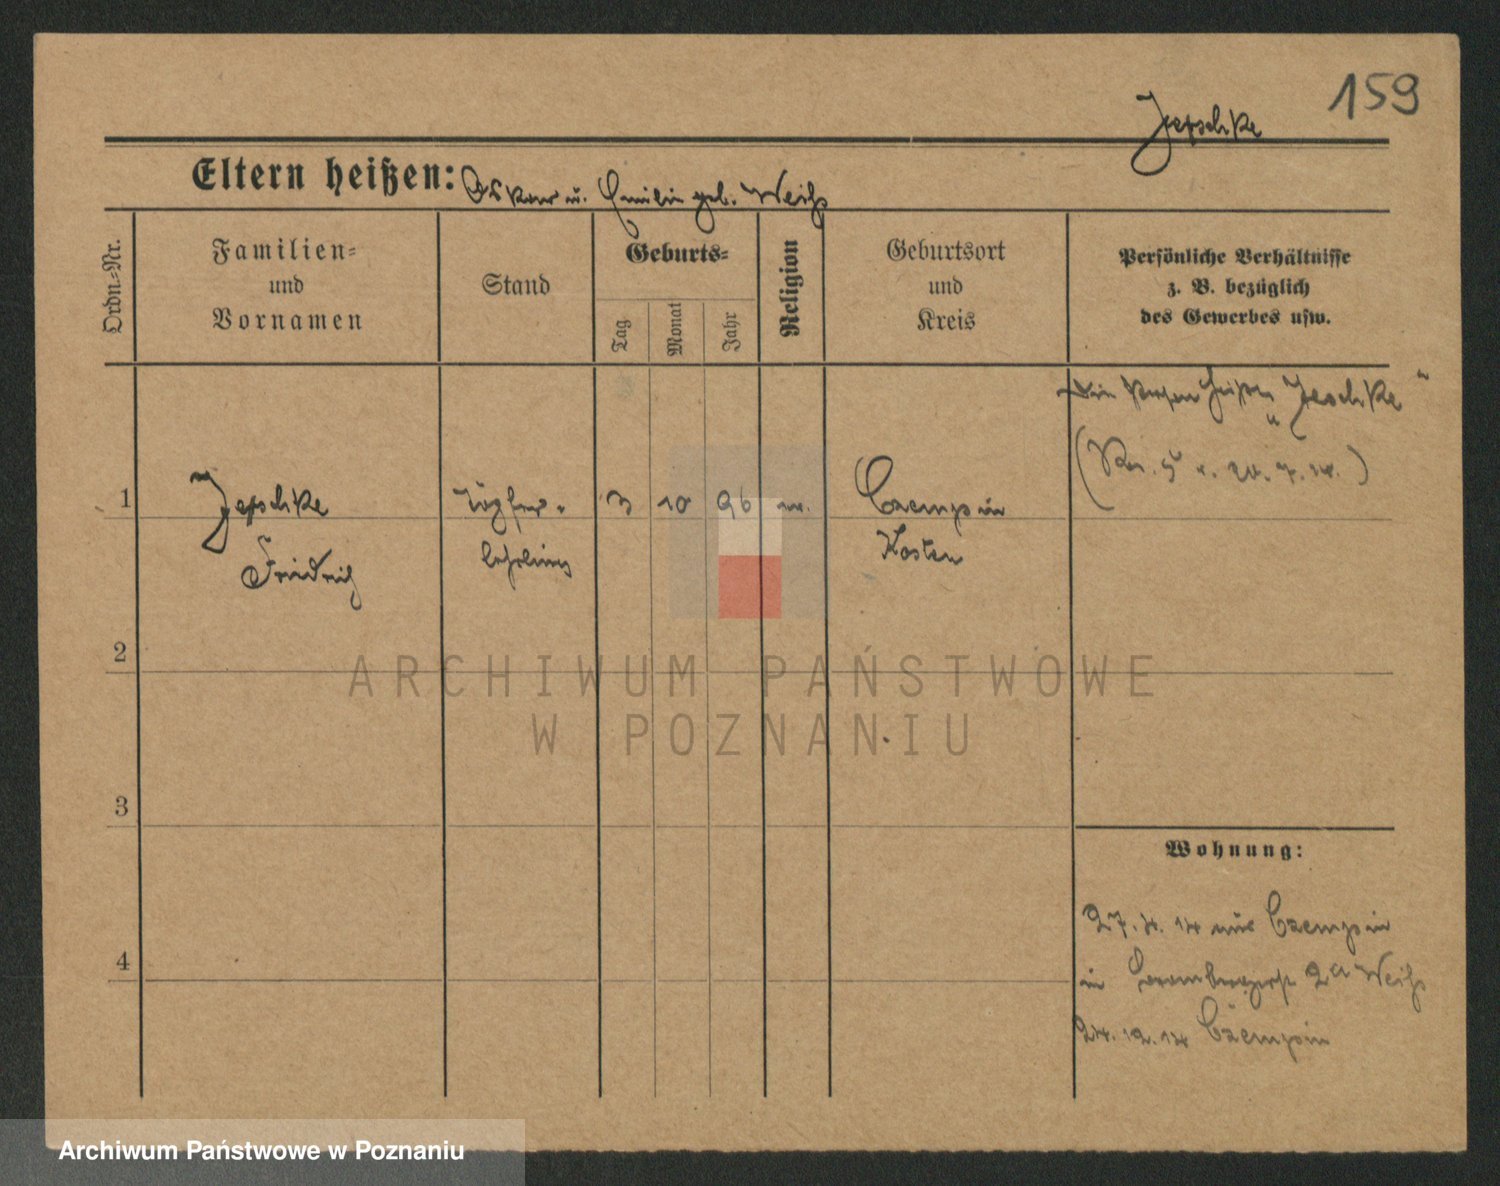 159
Jeschke
Eltern heißen: Oskar u. Emilie geb. Weihs
Ordn.-Nr.
Familien-
und
Vornamen
Stand
Geburts-
Tag
Monat
Jahr
Religion
Geburtsort
und
Kreis
Persönliche Verhältnisse
z. B. bezüglich
des Gewerbes usw.
heißen „Jeschke“
1
Jeschke
Töpfer-
3
10
96
Czempin
Friedrich
lehrling
Kosten
2
3
4
Wohnung:
27. 4. 14 aus Czempin
in
24. 12. 14 Czempin
ARCHIWUM PAŃSTWOWE
W POZNANIU
Archiwum Państwowe w Poznaniu